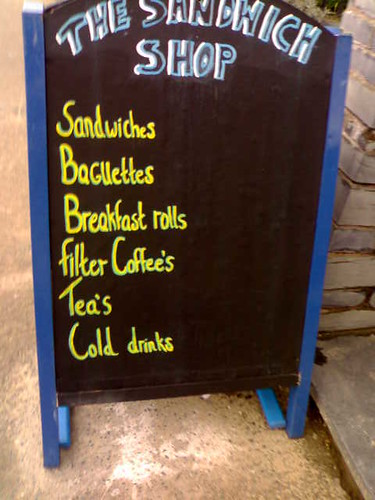 THE SANDWICH
SHOP
Sandwiches
Baguettes
Breakfast rolls
filter Coffee's
Tea's
Cold drinks